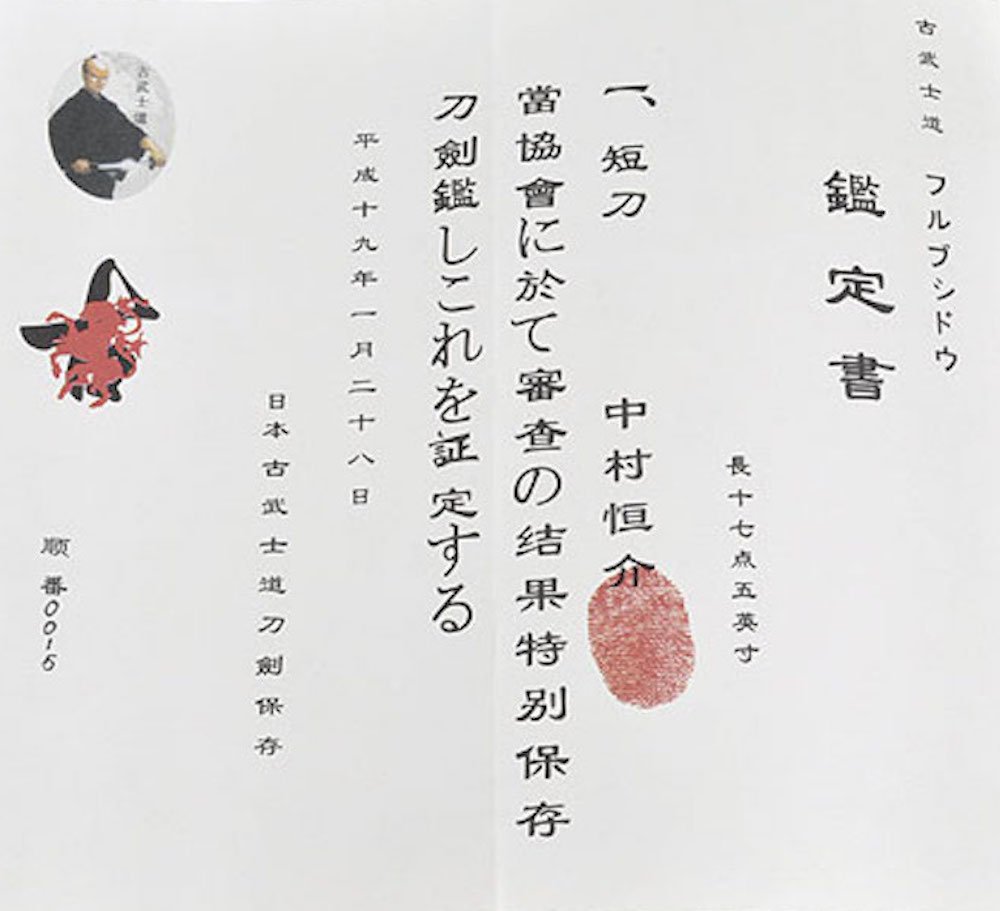 古武士道 フルブシドウ
鑑定書
長十七点五英寸
一、短刀 中村恒介
當協會に於て審査の结果特别保存
刀劍鑑しこれを証定する
平成十九年一月二十八日
日本古武士道刀劍保存
古武士道
顺番0015